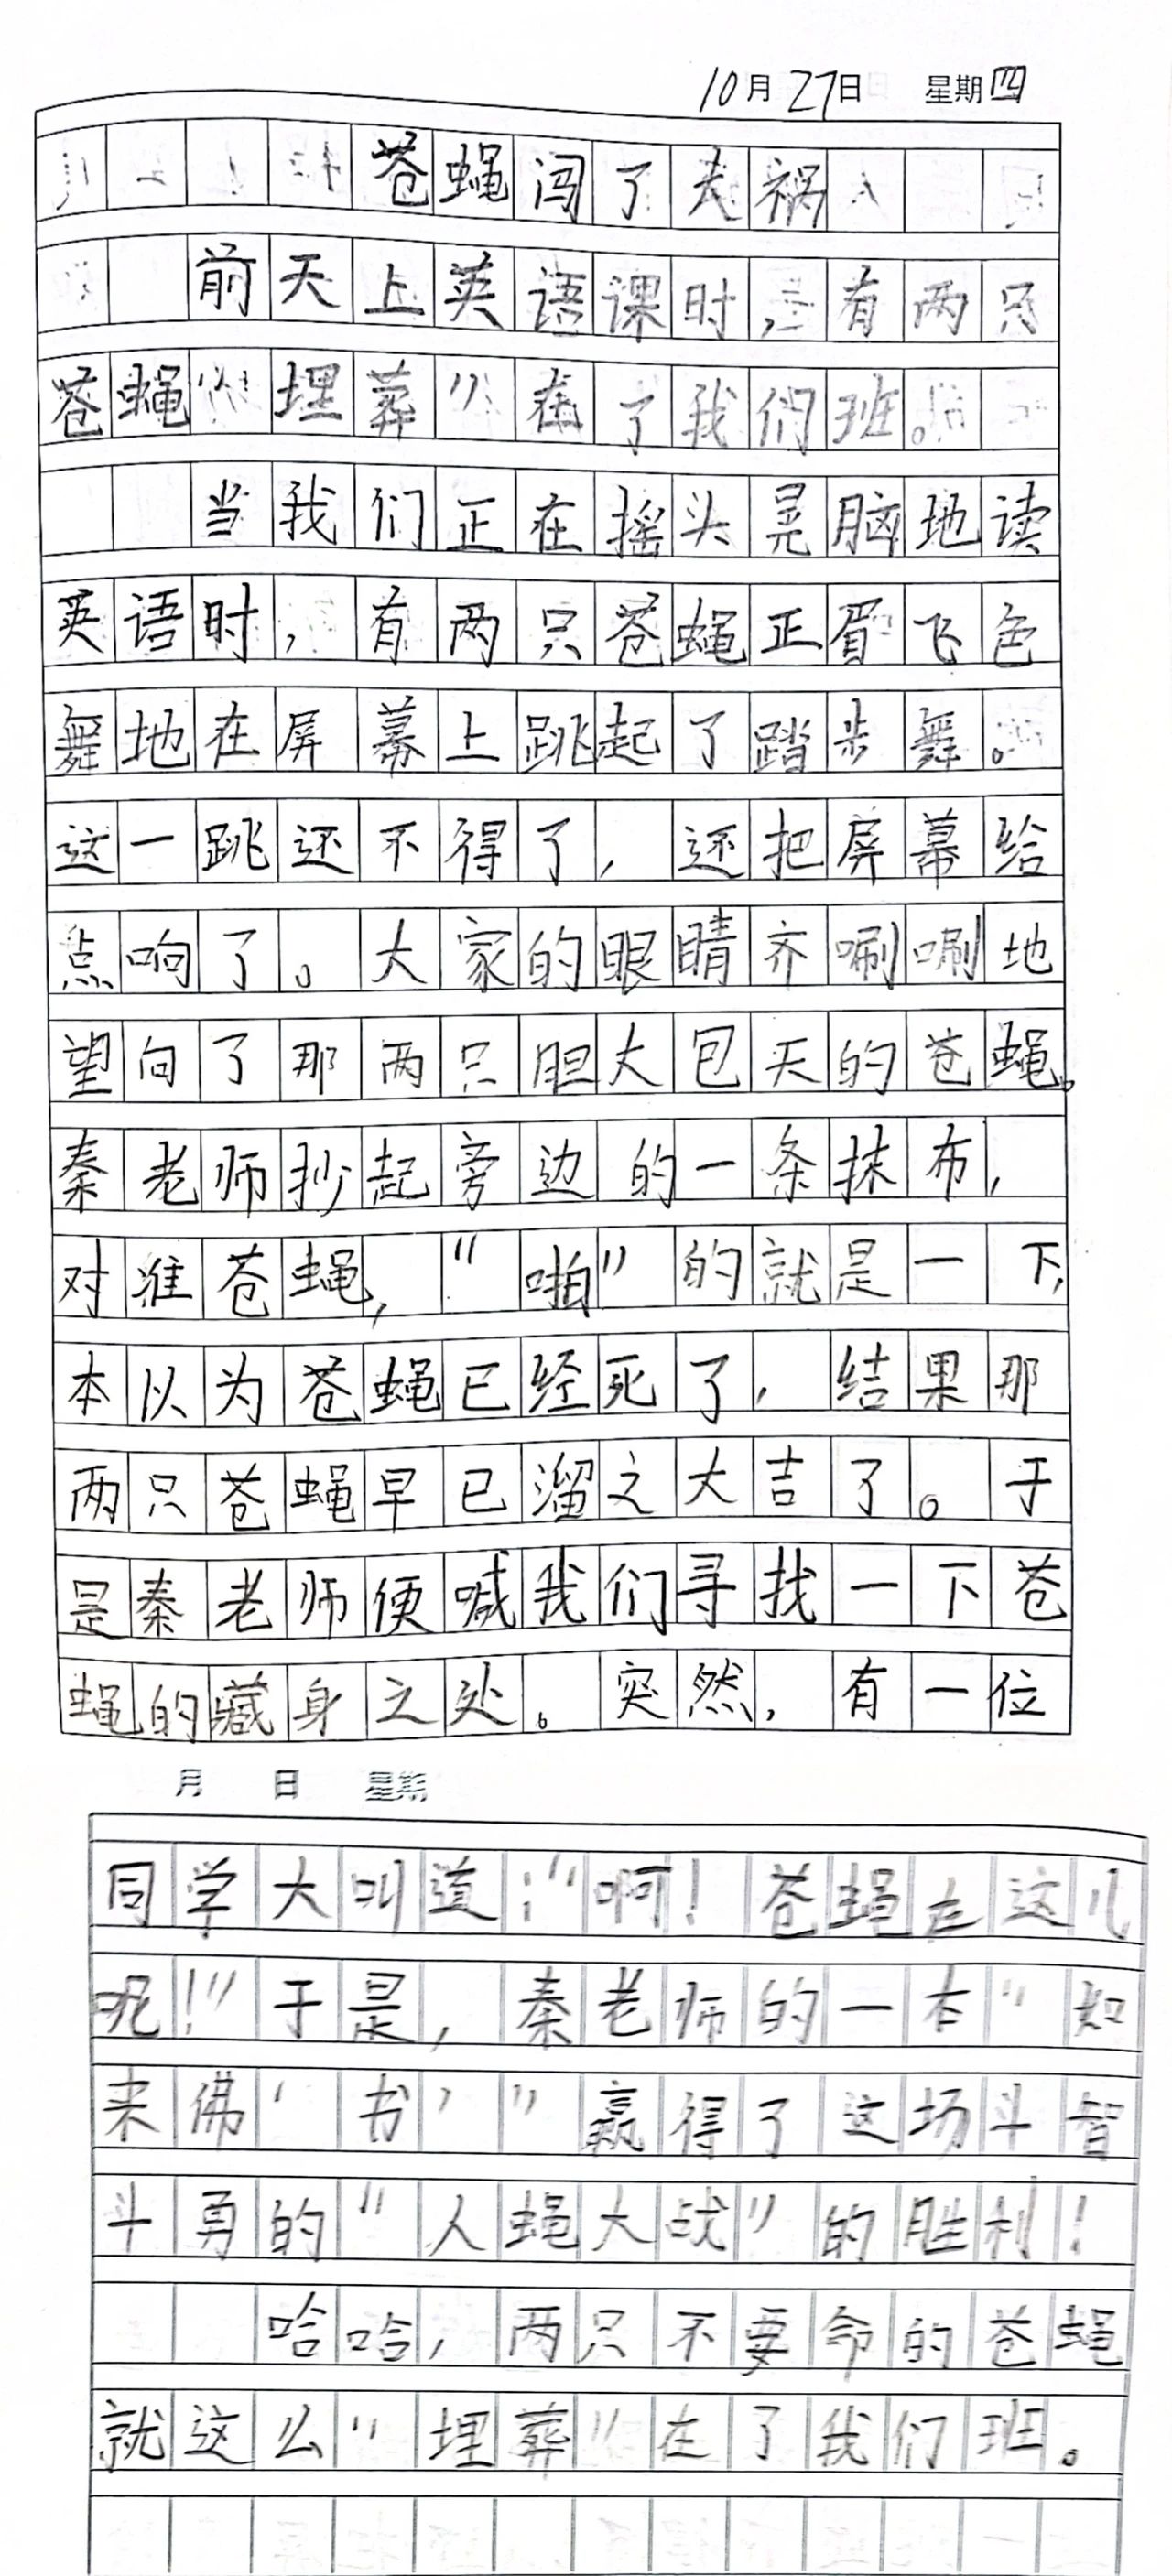 10月27日 星期四
苍蝇闯了大祸
前天上英语课时，有两只
苍蝇“埋葬”在了我们班。
当我们正在摇头晃脑地读
英语时，有两只苍蝇正眉飞色
舞地在屏幕上跳起了踏步舞。
这一跳还不得了，还把屏幕给
点响了。大家的眼睛齐唰唰地
望向了那两只胆大包天的苍蝇。
秦老师抄起旁边的一条抹布，
对准苍蝇，“啪”的就是一下，
本以为苍蝇已经死了，结果那
两只苍蝇早已溜之大吉了。于
是秦老师便喊我们寻找一下苍
蝇的藏身之处。突然，有一位
月 日 星期
同学大叫道：“啊！苍蝇在这儿
呢！”于是，秦老师的一本“知
来佛‘书’”赢得了这场斗智
斗勇的“人蝇大战”的胜利！
哈哈，两只不要命的苍蝇
就这么“埋葬”在了我们班。